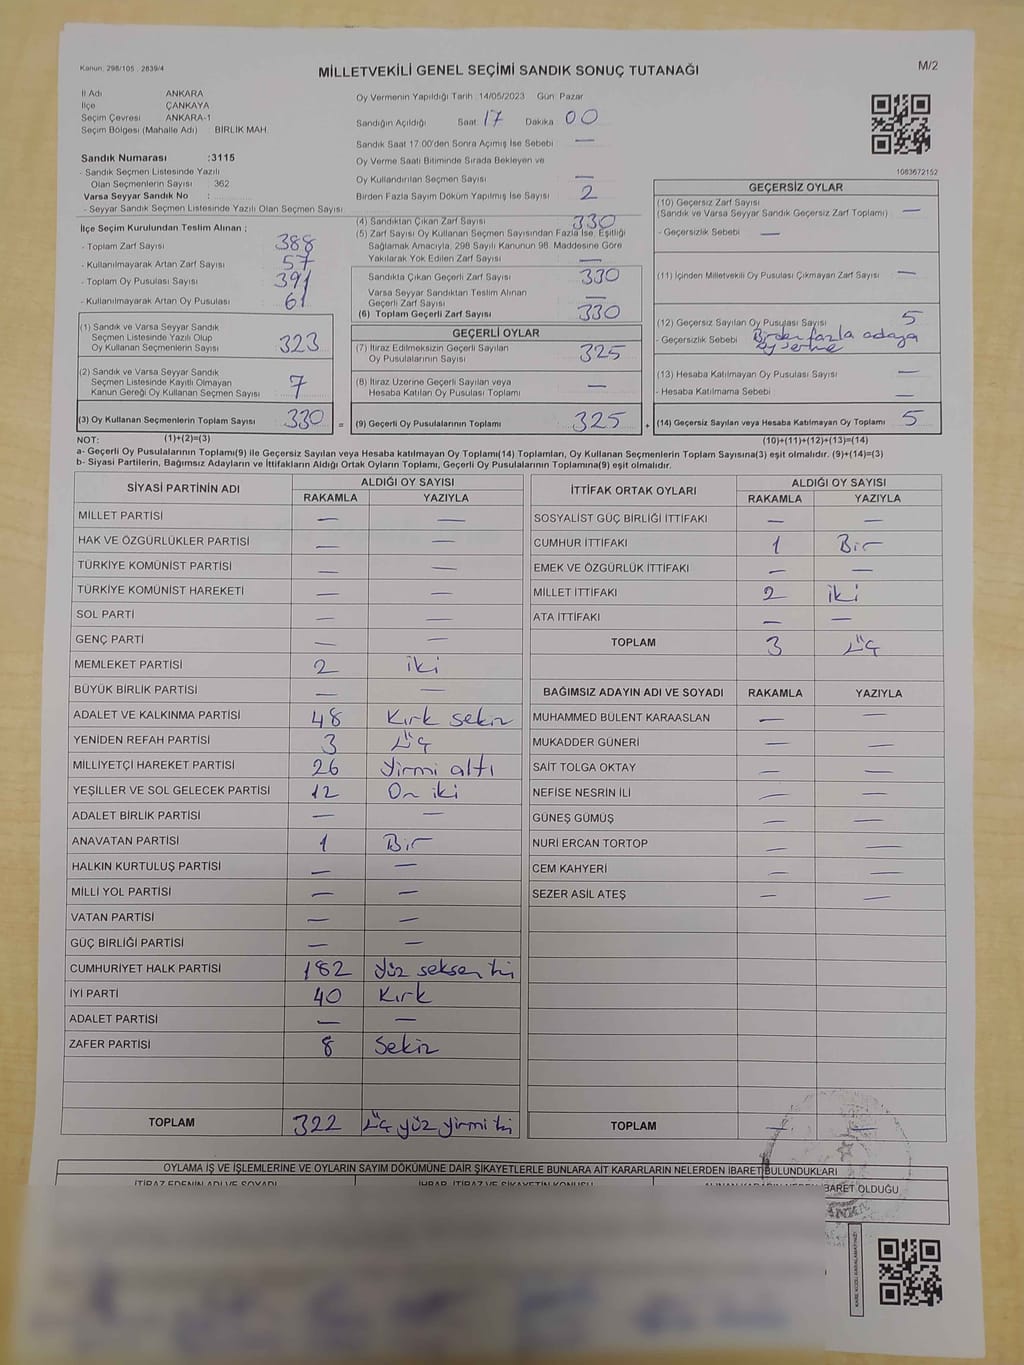 Kanun: 298/105 2839/4
MİLLETVEKİLİ GENEL SEÇİMİ SANDIK SONUÇ TUTANAĞI
M/2
İl Adı ANKARA
İlçe ÇANKAYA
Seçim Çevresi ANKARA-1
Seçim Bölgesi (Mahalle Adı) BİRLİK MAH.
Sandık Numarası :3115
- Sandık Seçmen Listesinde Yazılı
Olan Seçmenlerin Sayısı : 362
Varsa Seyyar Sandık No :
- Seyyar Sandık Seçmen Listesinde Yazılı Olan Seçmen Sayısı
İlçe Seçim Kurulundan Teslim Alınan ;
- Toplam Zarf Sayısı 388
- Kullanılmayarak Artan Zarf Sayısı 57
- Toplam Oy Pusulası Sayısı 391
- Kullanılmayarak Artan Oy Pusulası 61
(1) Sandık ve Varsa Seyyar Sandık
Seçmen Listesinde Yazılı Olup
Oy Kullanan Seçmenlerin Sayısı 323
(2) Sandık ve Varsa Seyyar Sandık
Seçmen Listesinde Kayıtlı Olmayan
Kanun Gereği Oy Kullanan Seçmen Sayısı 7
(3) Oy Kullanan Seçmenlerin Toplam Sayısı 330 =
Oy Vermenin Yapıldığı Tarih :14/05/2023 Gün: Pazar
Sandığın Açıldığı Saat 17 Dakika 00
Sandık Saat 17.00'den Sonra Açılmış İse Sebebi —
Oy Verme Saati Bitiminde Sırada Bekleyen ve
Oy Kullandırılan Seçmen Sayısı —
Birden Fazla Sayım Döküm Yapılmış İse Sayısı 2
(4) Sandıktan Çıkan Zarf Sayısı 330
(5) Zarf Sayısı Oy Kullanan Seçmen Sayısından Fazla İse, Eşitliği
Sağlamak Amacıyla, 298 Sayılı Kanunun 98. Maddesine Göre
Yakılarak Yok Edilen Zarf Sayısı —
Sandıkta Çıkan Geçerli Zarf Sayısı 330
Varsa Seyyar Sandıktan Teslim Alınan
Geçerli Zarf Sayısı —
(6) Toplam Geçerli Zarf Sayısı 330
GEÇERLİ OYLAR
(7) İtiraz Edilmeksizin Geçerli Sayılan
Oy Pusulalarının Sayısı 325
(8) İtiraz Üzerine Geçerli Sayılan veya
Hesaba Katılan Oy Pusulası Toplamı —
(9) Geçerli Oy Pusulalarının Toplamı 325 +
1083672152
GEÇERSİZ OYLAR
(10) Geçersiz Zarf Sayısı
(Sandık ve Varsa Seyyar Sandık Geçersiz Zarf Toplamı) —
- Geçersizlik Sebebi —
(11) İçinden Milletvekili Oy Pusulası Çıkmayan Zarf Sayısı —
(12) Geçersiz Sayılan Oy Pusulası Sayısı 5
- Geçersizlik Sebebi Birden fazla adaya
oy verme
(13) Hesaba Katılmayan Oy Pusulası Sayısı —
- Hesaba Katılmama Sebebi —
(14) Geçersiz Sayılan veya Hesaba Katılmayan Oy Toplamı 5
NOT: (1)+(2)=(3) (10)+(11)+(12)+(13)=(14)
a- Geçerli Oy Pusulasının Toplamı(9) ile Geçersiz Sayılan veya Hesaba katılmayan Oy Toplamı(14) Toplamları, Oy Kullanan Seçmenlerin Toplam Sayısına(3) eşit olmalıdır. (9)+(14)=(3)
b- Siyasi Partilerin, Bağımsız Adayların ve İttifakların Aldığı Ortak Oyların Toplamı, Geçerli Oy Pusulalarının Toplamına(9) eşit olmalıdır.
SİYASİ PARTİNİN ADI ALDIĞI OY SAYISI
RAKAMLA YAZIYLA
MİLLET PARTİSİ — —
HAK VE ÖZGÜRLÜKLER PARTİSİ — —
TÜRKİYE KOMÜNİST PARTİSİ — —
TÜRKİYE KOMÜNİST HAREKETİ — —
SOL PARTİ — —
GENÇ PARTİ — —
MEMLEKET PARTİSİ 2 iki
BÜYÜK BİRLİK PARTİSİ — —
ADALET VE KALKINMA PARTİSİ 48 Kırk sekiz
YENİDEN REFAH PARTİSİ 3 Üç
MİLLİYETÇİ HAREKET PARTİSİ 26 Yirmi altı
YEŞİLLER VE SOL GELECEK PARTİSİ 12 On iki
ADALET BİRLİK PARTİSİ — —
ANAVATAN PARTİSİ 1 Bir
HALKIN KURTULUŞ PARTİSİ — —
MİLLİ YOL PARTİSİ — —
VATAN PARTİSİ — —
GÜÇ BİRLİĞİ PARTİSİ — —
CUMHURİYET HALK PARTİSİ 182 Yüz seksen iki
İYİ PARTİ 40 Kırk
ADALET PARTİSİ — —
ZAFER PARTİSİ 8 Sekiz
TOPLAM 322 Üç yüz yirmi iki
İTTİFAK ORTAK OYLARI ALDIĞI OY SAYISI
RAKAMLA YAZIYLA
SOSYALİST GÜÇ BİRLİĞİ İTTİFAKI — —
CUMHUR İTTİFAKI 1 Bir
EMEK VE ÖZGÜRLÜK İTTİFAKI — —
MİLLET İTTİFAKI 2 iki
ATA İTTİFAKI — —
TOPLAM 3 Üç
BAĞIMSIZ ADAYIN ADI VE SOYADI RAKAMLA YAZIYLA
MUHAMMED BÜLENT KARAASLAN — —
MUKADDER GÜNERİ — —
SAİT TOLGA OKTAY — —
NEFİSE NESRİN İLİ — —
GÜNEŞ GÜMÜŞ — —
NURİ ERCAN TORTOP — —
CEM KAHYERİ — —
SEZER ASİL ATEŞ — —
TOPLAM — —
OYLAMA İŞ VE İŞLEMLERİNE VE OYLARIN SAYIM DÖKÜMÜNE DAİR ŞİKAYETLERLE BUNLARA AİT KARARLARIN NELERDEN İBARET BULUNDUKLARI
İTİRAZ EDENİN ADI VE SOYADI İHBAR, İTİRAZ VE ŞİKAYETİN KONUSU ALINAN KARARIN NEDEN İBARET OLDUĞU
KARE KODU KARALAMAYINIZ!